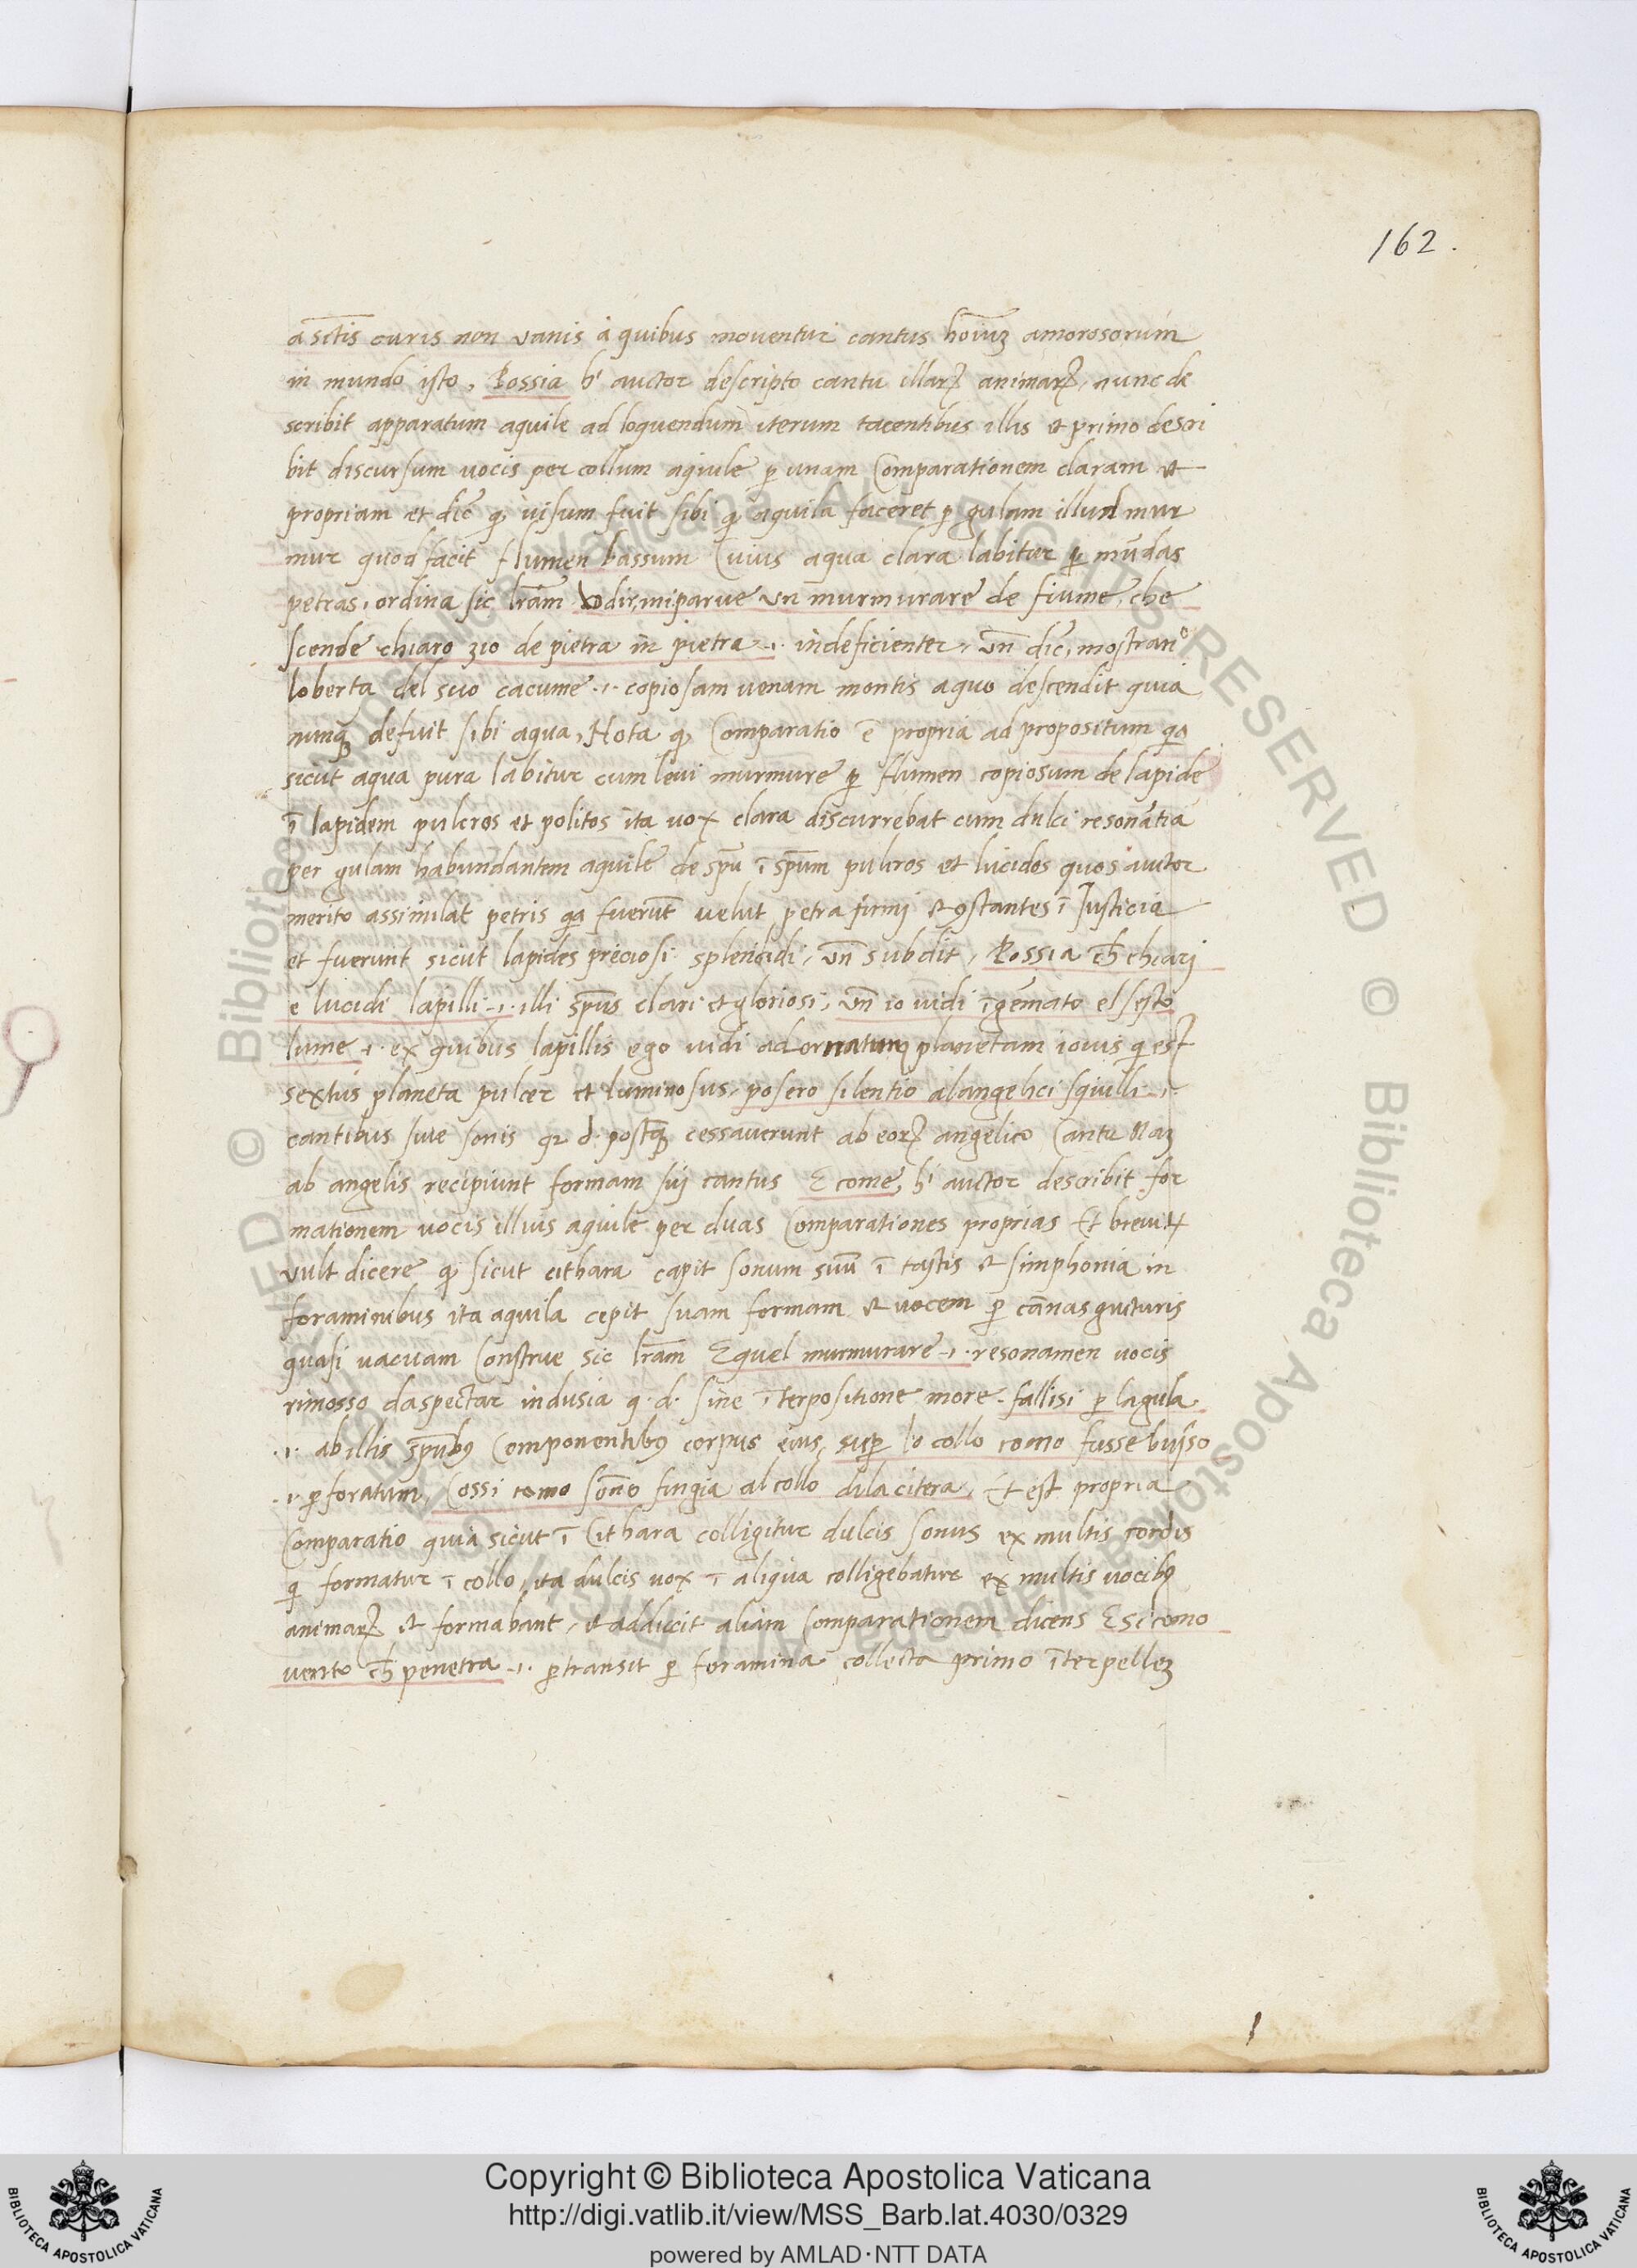 162.
a sctīs curis non vanis à quibus moventur cantus hoīuꝫ amorosorum
in mundo isto, Possia hꝰ auctor descripto cantu illarꝝ animarꝝ, nunc de
scribit apparatum aquile ad loquendum iterum tacentibus illis et primo descri
bit discursum vocis per collum aquile ꝑ unam Comparationem claram et
propriam et dic̄ ꝙ visum fuit sibi ꝙ aquila faceret ꝑ gulam illud mur
mur quod facit flumen bassum Cuius aqua clara labitur ꝑ mundas
petras, ordina sic lr̄am Vdir miparve un murmurare de fiume, che
scende chiaro gio de pietra in pietra .i. indeficienter, vn̄ dic̄, mostran°
loberta del suo cacume .i. copiosam venam montis aquo descendit quia
nunqꝫ defuit sibi aqua, Nota ꝙ Comparatio ē propria ad propositum qa
sicut aqua pura labitur cum levi murmure ꝑ flumen copiosum de lapide
ī lapidem pulcros et politos ita vox clara discurrebat cum dulci resonātia
per gulam habundantem aquile de sp̄u ī sp̄um pulcros et lucidos quos auctor
merito assimilat petris qa fuerūt velut petra firmi et ꝯstantes ī Justicia
et fuerunt sicut lapides preciosi splendidi, vn̄ subdit, Possia ch̄ chiari
e lucidi lapilli .i. illi sp̄us clari et gloriosi, vn̄ io vidi īgemato el sesto
lume .i. ex quibus lapillis ego vidi adornatum planetam iovis qi est
sextus planeta pulcer et luminosus, posero silentio alangelici squilli .i.
cantibus sive sonis q. d. postqꝫ cessaverunt ab eorꝝ angelico Cantu Naꝫ
ab angelis recipiunt formam sui cantus E come, hꝰ auctor describit for
mationem vocis illius aquile per duas Comparationes proprias Et brevit̄
vult dicere ꝙ sicut cithara capit sonum suū ī tastis et simphonia in
foraminibus ita aquila cepit suam formam et vocem ꝑ cānas gucturis
quasi vacuam Construe sic lr̄am Equel murmurare .i. resonamen vocis
rimosso daspectar indusia q. d. sine īterpositione more. fallisi ꝑ lagula
.i. ab illis sp̄ibꝯ Componentibꝯ corpus eius, suꝑ lo collo como fusse buiso
.i. ꝑforatum, Cossi como sōno fingia al collo dila citera, Et est propria
Comparatio quia sicut ī Cithara colligitur dulcis sonus ex multis cordis
qi formatur ī collo, ita dulcis vox ī aliqua colligebatur ex multis vocibꝯ
animarꝝ et formabant, et adducit aliam Comparationem dicens E si como
vento ch̄ penetra .i. ꝑtransit ꝑ foramina collecta primo īter pelleꝫ
Copyright © Biblioteca Apostolica Vaticana
http://digi.vatlib.it/view/MSS_Barb.lat.4030/0329
powered by AMLAD·NTT DATA